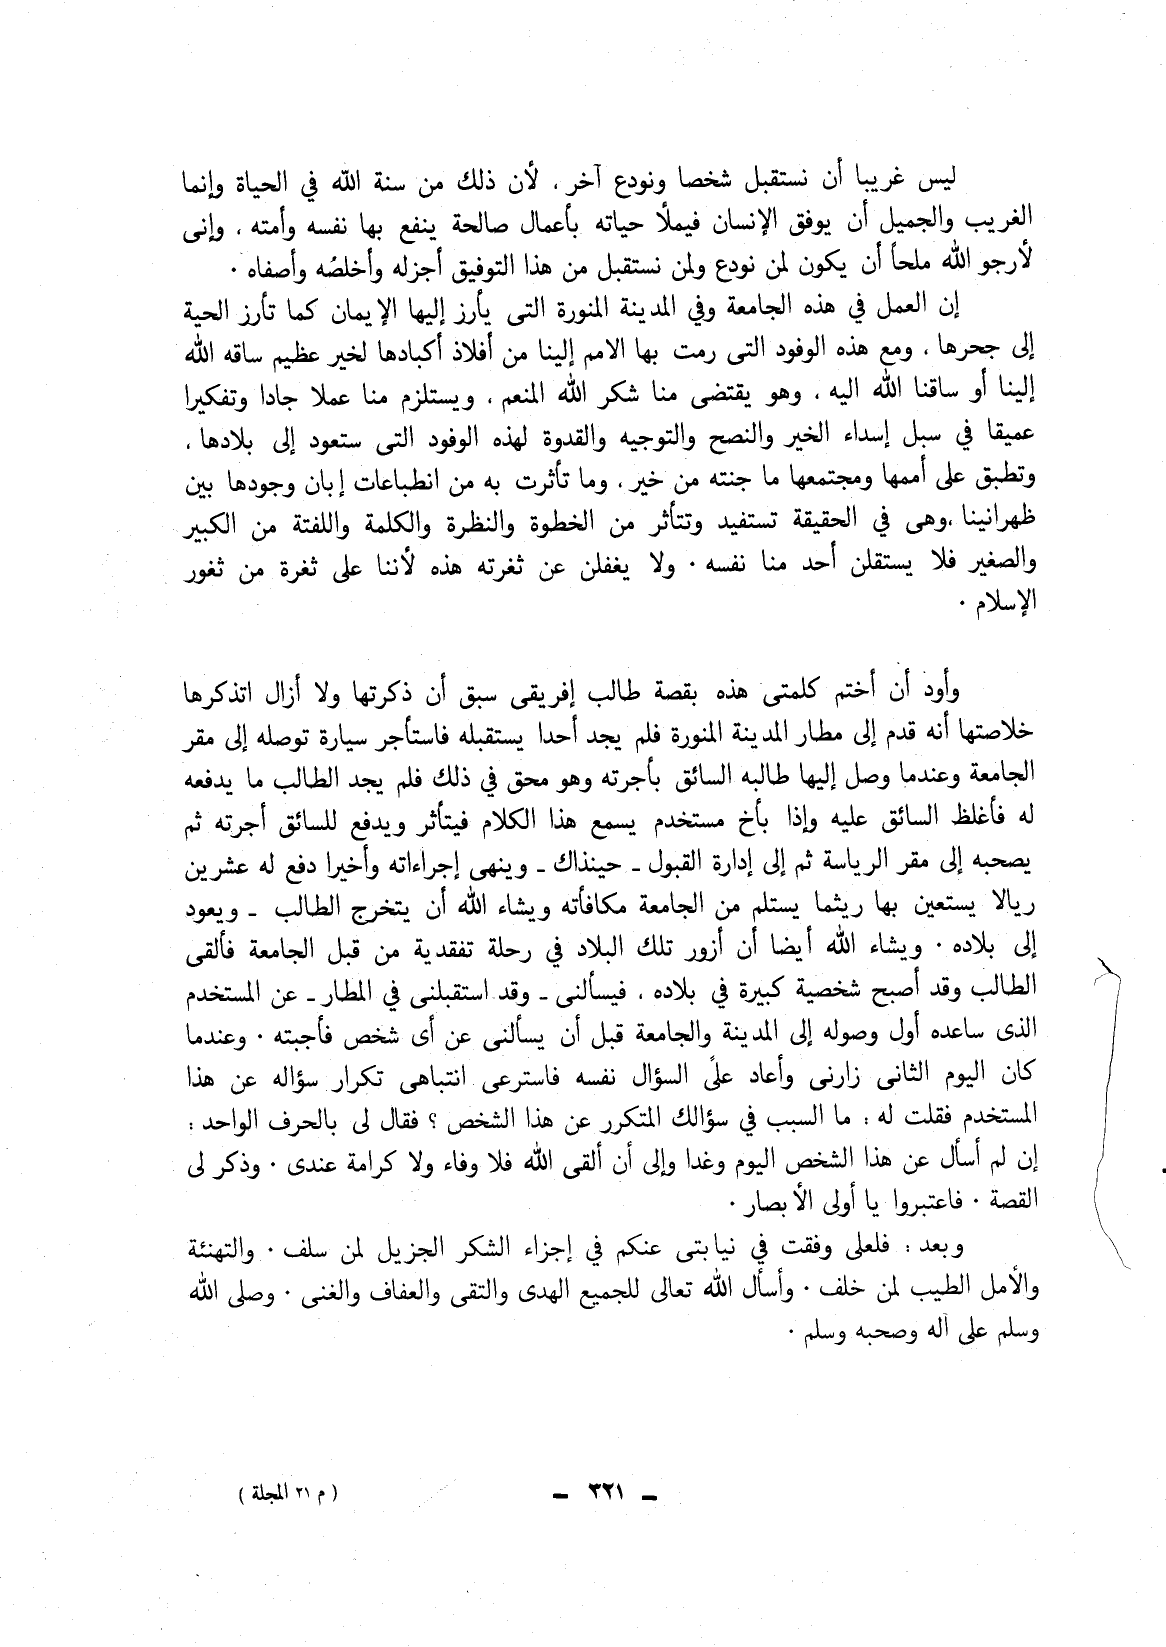 ليس غريبا أن نستقبل شخصا ونودع آخر ، لأن ذلك من سنة الله في الحياة وإنما
الغريب والجميل أن يوفق الإنسان فيملأ حياته بأعمال صالحة ينفع بها نفسه وأمته ، وإنى
لأرجو الله ملحاً أن يكون لمن نودع ولمن نستقبل من هذا التوفيق أجزله وأخلصُه وأصفاه ٠
إن العمل في هذه الجامعة وفي المدينة المنورة التى يأرز إليها الإيمان كما تأرز الحية
إلى جحرها ، ومع هذه الوفود التى رمت بها الامم إلينا من أفلاذ أكبادها لخير عظيم ساقه الله
إلينا أو ساقنا الله اليه ، وهو يقتضى منا شكر الله المنعم ، ويستلزم منا عملا جادا وتفكيرا
عميقا في سبل إسداء الخير والنصح والتوجيه والقدوة لهذه الوفود التى ستعود إلى بلادها ،
وتطبق على أممها ومجتمعها ما جنته من خير ، وما تأثرت به من انطباعات إبان وجودها بين
ظهرانينا ،وهى في الحقيقة تستفيد وتتأثر من الخطوة والنظرة والكلمة واللفتة من الكبير
والصغير فلا يستقلن أحد منا نفسه ٠ ولا يغفلن عن ثغرته هذه لأننا على ثغرة من ثغور
الإسلام ٠
وأود أن أختم كلمتى هذه بقصة طالب إفريقى سبق أن ذكرتها ولا أزال اتذكرها
خلاصتها أنه قدم إلى مطار المدينة المنورة فلم يجد أحدا يستقبله فاستأجر سيارة توصله إلى مقر
الجامعة وعندما وصل إليها طالبه السائق بأجرته وهو محق في ذلك فلم يجد الطالب ما يدفعه
له فأغلظ السائق عليه وإذا بأخ مستخدم يسمع هذا الكلام فيتأثر ويدفع للسائق أجرته ثم
يصحبه إلى مقر الرياسة ثم إلى إدارة القبول ـ حينذاك ـ وينهى إجراءاته وأخيرا دفع له عشرين
ريالا يستعين بها ريثما يستلم من الجامعة مكافأته ويشاء الله أن يتخرج الطالب ـ ويعود
إلى بلاده ٠ ويشاء الله أيضا أن أزور تلك البلاد في رحلة تفقدية من قبل الجامعة فألقى
الطالب وقد أصبح شخصية كبيرة في بلاده ، فيسألنى ـ وقد استقبلنى في المطار ـ عن المستخدم
الذى ساعده أول وصوله إلى المدينة والجامعة قبل أن يسألنى عن أى شخص فأجبته ٠ وعندما
كان اليوم الثانى زارنى وأعاد علىَّ السؤال نفسه فاسترعى انتباهى تكرار سؤاله عن هذا
المستخدم فقلت له : ما السبب في سؤالك المتكرر عن هذا الشخص ؟ فقال لى بالحرف الواحد :
إن لم أسأل عن هذا الشخص اليوم وغدا وإلى أن ألقى الله فلا وفاء ولا كرامة عندى ٠ وذكر لى
القصة ٠ فاعتبروا يا أولى الأبصار ٠
وبعد : فلعلى وفقت في نيابتى عنكم في إجزاء الشكر الجزيل لمن سلف ٠ والتهنئة
والأمل الطيب لمن خلف ٠ وأسأل الله تعالى للجميع الهدى والتقى والعفاف والغنى ٠ وصلى الله
وسلم على آله وصحبه وسلم ٠
ـ ٣٢١ ـ
( م ٢١ المجلة )